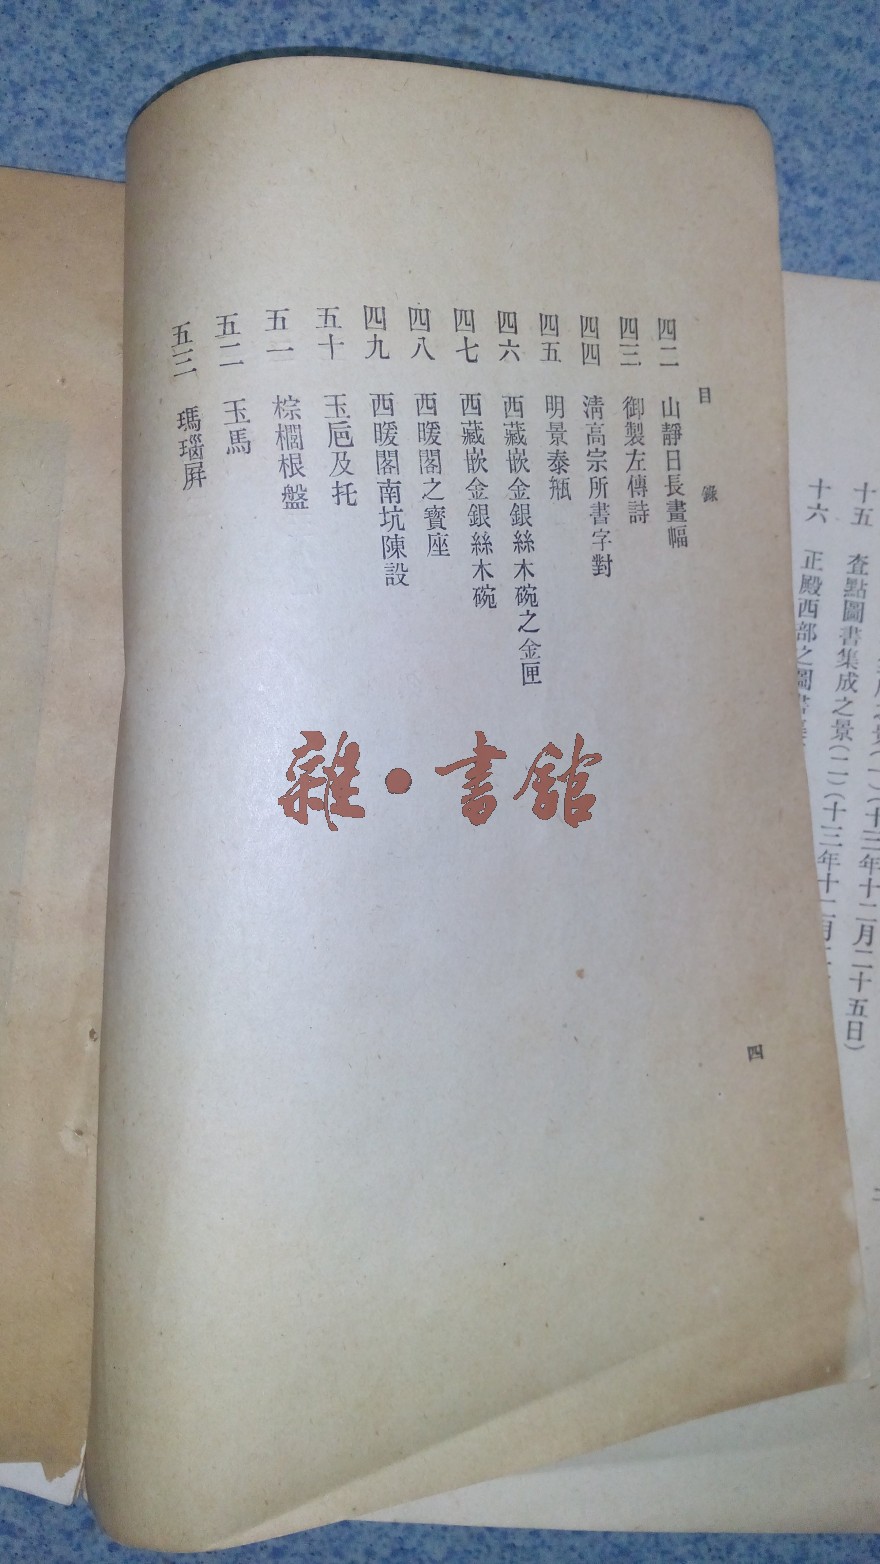 目 錄
四二 山靜日長畫幅
四三 御製左傳詩
四四 淸高宗所書字對
四五 明景泰瓶
四六 西藏嵌金銀絲木碗之金匣
四七 西藏嵌金銀絲木碗
四八 西暖閣之寶座
四九 西暖閣南坑陳設
五十 玉巵及托
五一 棕櫚根盤
五二 玉馬
五三 瑪瑙屛
四
雜·書館
十五 查點圖書集成之景(二)(十三年十二月二十五日)
十六 正殿西部之圖書集